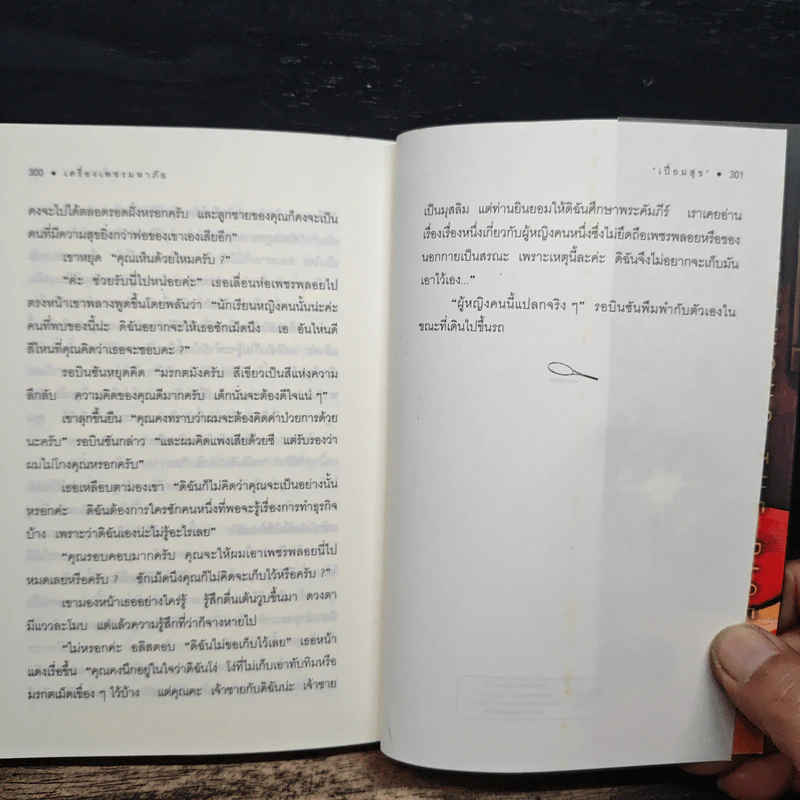 300 • เครื่องเพชรมหาภัย
คงจะไปได้ตลอดรอดฝั่งหรอกครับ และลูกชายของคุณก็คงจะเป็น
คนที่มีความสุขยิ่งกว่าพ่อของเขาเองเสียอีก”
เขาหยุด “คุณเห็นด้วยไหมครับ ?”
“ค่ะ ช่วยรับนี่ไปหน่อยค่ะ” เธอเลื่อนห่อเพชรพลอยไป
ตรงหน้าเขาพลางพูดขึ้นโดยพลันว่า “นักเรียนหญิงคนนั้นน่ะค่ะ
คนที่พบของนี้น่ะ ดิฉันอยากจะให้เธอซักเม็ดนึง เอ อันไหนดี
สีไหนที่คุณคิดว่าเธอจะชอบคะ ?”
รอบินซันหยุดคิด “มรกตมังครับ สีเขียวเป็นสีแห่งความ
ลึกลับ ความคิดของคุณดีมากครับ เด็กนั่นจะต้องดีใจแน่ ๆ”
เขาลุกขึ้นยืน “คุณคงทราบว่าผมจะต้องคิดค่าป่วยการด้วย
นะครับ” รอบินซันกล่าว “และผมคิดแพงเสียด้วยซี แต่รับรองว่า
ผมไม่โกงคุณหรอกครับ”
เธอเหลือบตามองเขา “ดิฉันก็ไม่คิดว่าคุณจะเป็นอย่างนั้น
หรอกค่ะ ดิฉันต้องการใครซักคนหนึ่งที่พอจะรู้เรื่องการทำธุรกิจ
บ้าง เพราะว่าดิฉันเองน่ะไม่รู้อะไรเลย”
“คุณรอบคอบมากครับ คุณจะให้ผมเอาเพชรพลอยนี่ไป
หมดเลยหรือครับ ? ซักเม็ดนึงคุณก็ไม่คิดจะเก็บไว้หรือครับ ?”
เขามองหน้าเธออย่างใคร่รู้ รู้สึกตื่นเต้นวูบขึ้นมา ดวงตา
มีแววละโมบ แต่แล้วความรู้สึกที่ว่าก็จางหายไป
“ไม่หรอกค่ะ อลิสตอบ “ดิฉันไม่ขอเก็บไว้เลย” เธอหน้า
แดงเรื่อขึ้น “คุณคงนึกอยู่ในใจว่าดิฉันโง่ โง่ที่ไม่เก็บเอาทับทิมหรือ
มรกตเม็ดเขื่อง ๆ ไว้บ้าง แต่คุณคะ เจ้าชายกับดิฉันน่ะ เจ้าชาย
‘เปี่ยมสุข’ • 301
เป็นมุสลิม แต่ท่านยินยอมให้ดิฉันศึกษาพระคัมภีร์ เราเคยอ่าน
เรื่องเรื่องหนึ่งเกี่ยวกับผู้หญิงคนหนึ่งซึ่งไม่ยึดถือเพชรพลอยหรือของ
นอกกายเป็นสรณะ เพราะเหตุนี้ละค่ะ ดิฉันจึงไม่อยากจะเก็บมัน
เอาไว้เอง...”
“ผู้หญิงคนนี้แปลกจริง ๆ” รอบินซันพึมพำกับตัวเองใน
ขณะที่เดินไปขึ้นรถ